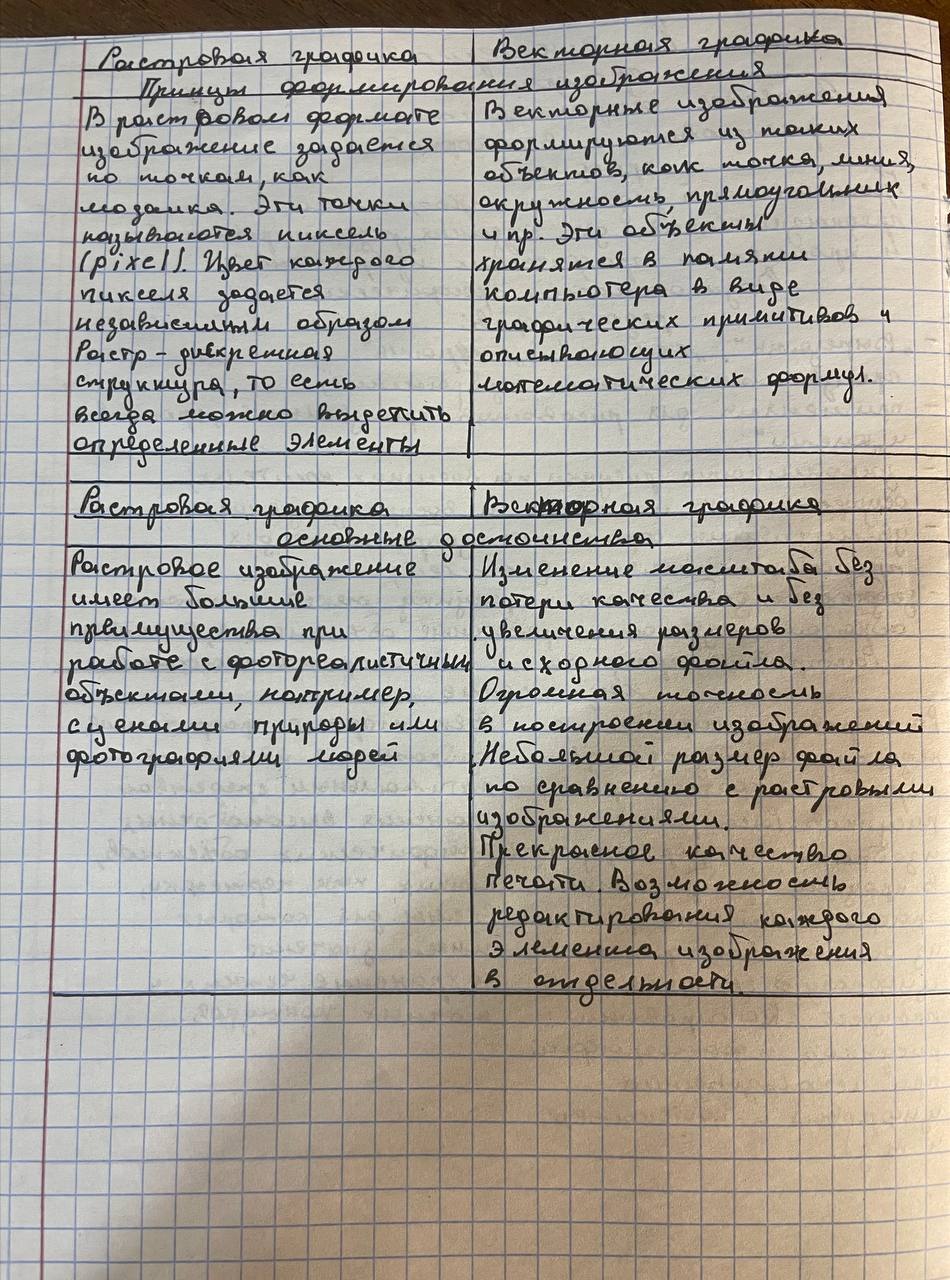 Растровая графика
Векторная графика
Принцы формирования изображения
В растровом формате
изображение задается
по точкам, как
мозаика. Эти точки
называются пиксель
(pixel). Цвет каждого
пикселя задается
независимым образом
Растр - дискретная
структура, то есть
всегда можно выделить
определенные элементы
Векторные изображения
формируются из таких
объектов, как точка, линия,
окружность, прямоугольник
и пр. Эти объекты
хранятся в памяти
компьютера в виде
графических примитивов и
описывающих
математических формул.
Растровая графика
Векторная графика
основные достоинства
Растровое изображение
имеет большие
преимущества при
работе с фотореалистичным
объектами, например,
сценами природы или
фотографиями людей
Изменение масштаба без
потери качества и без
увеличения размеров
исходного файла.
Огромная точность
в построении изображений
Небольшой размер файла
по сравнению с растровыми
изображениями.
Прекрасное качество
печати. Возможность
редактирования каждого
элемента изображения
в отдельности.